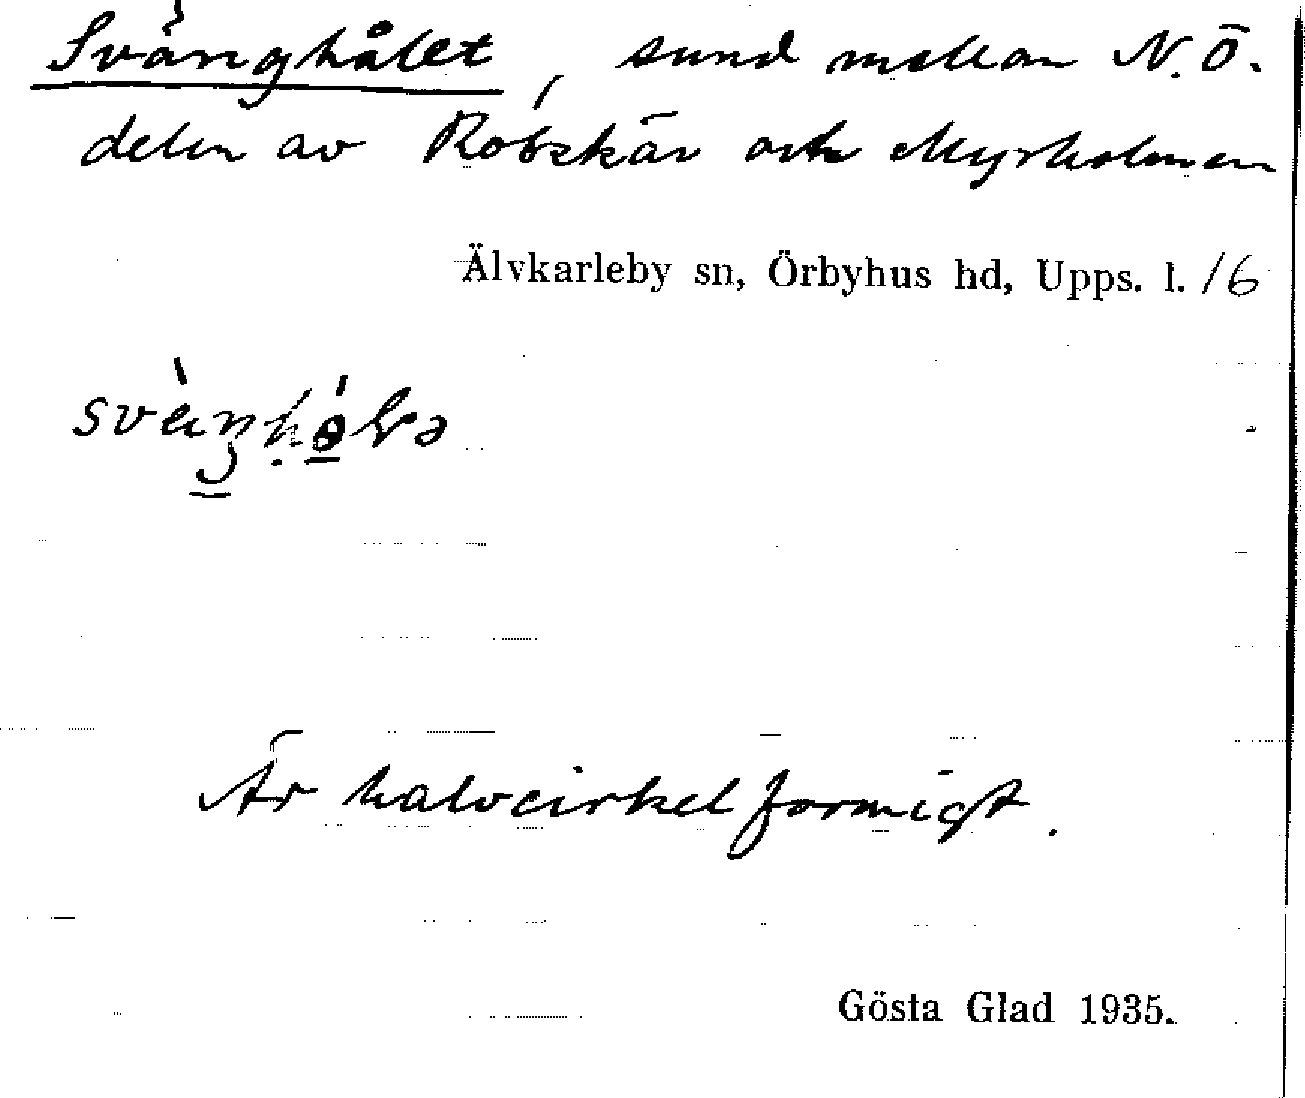 Svänghålet, sund mellan N.Ö.
delen av Rotskär och Myrholmen
Älvkarleby sn, Örbyhus hd, Upps. l. 16
Är halvcirkelformigt.
Gösta Glad 1935.